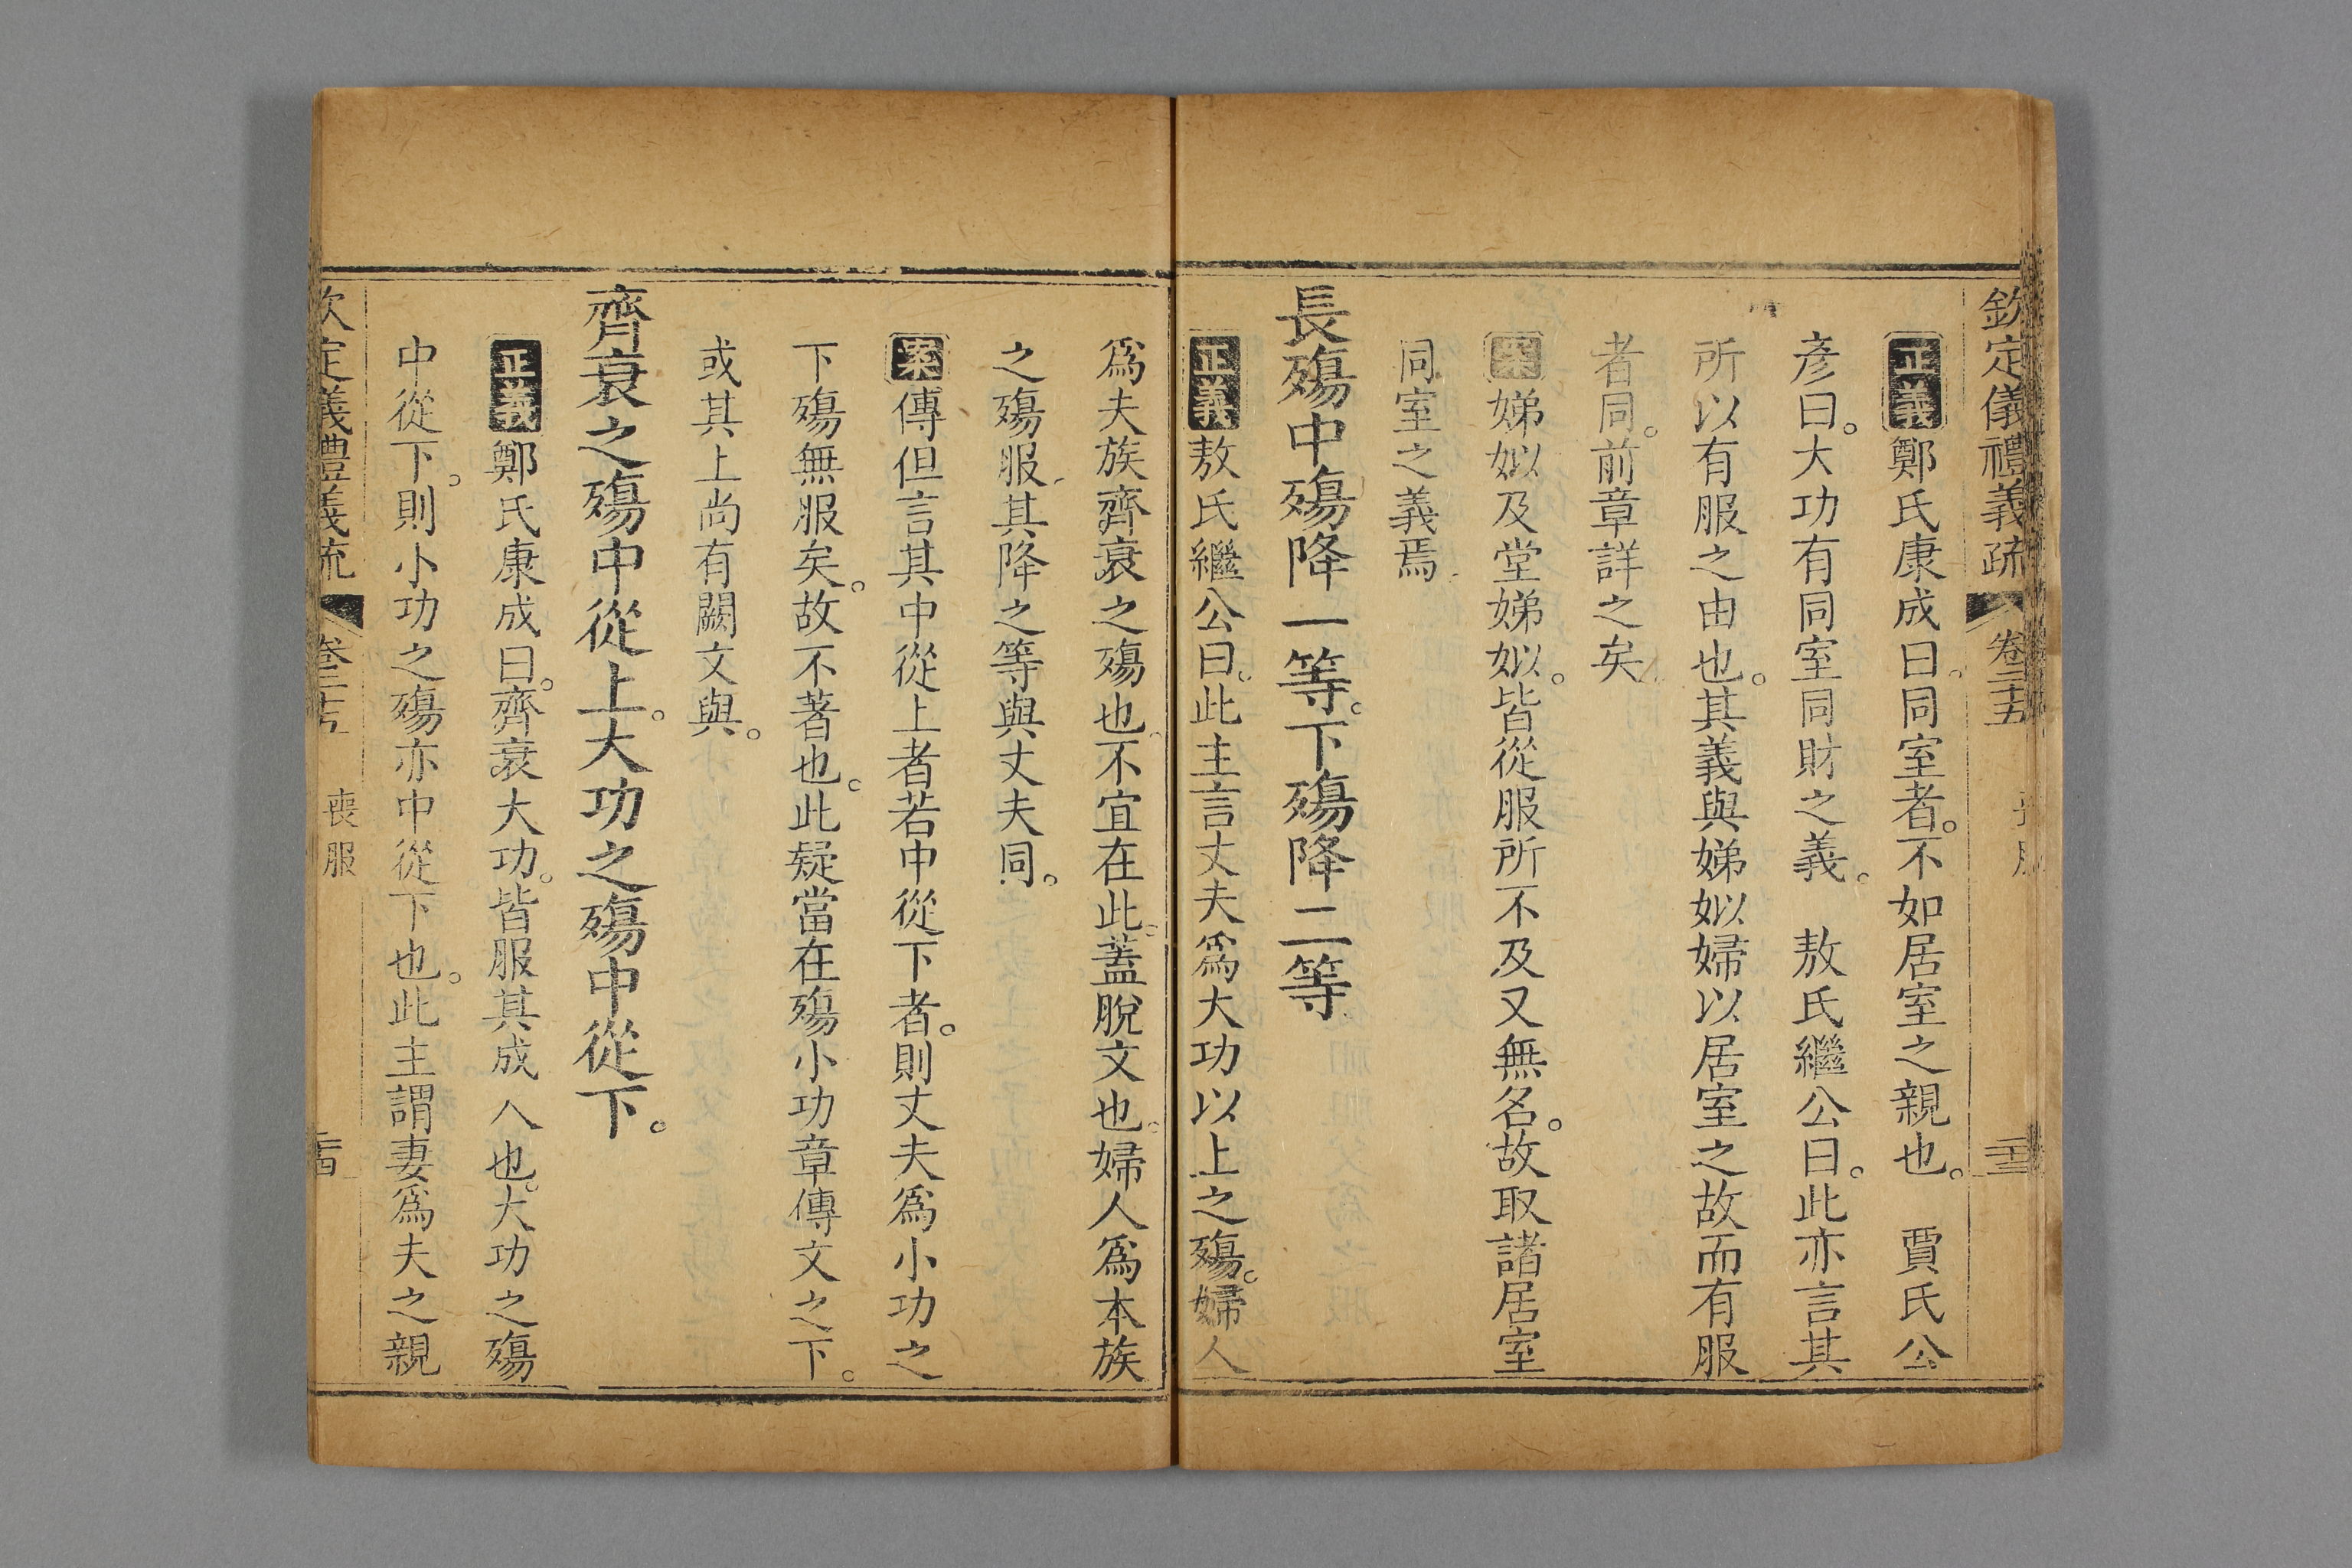 欽定儀禮義疏 卷二十五 喪服 二十三
正義鄭氏康成曰。同室者。不如居室之親也。 賈氏公
彥曰。大功有同室同財之義。 敖氏繼公曰。此亦言其
所以有服之由也。其義與娣姒婦以居室之故而有服
者同。前章詳之矣
案娣姒及堂娣姒。皆從服所不及又無名。故取諸居室
同室之義焉
長殤中殤降一等。下殤降二等
正義敖氏繼公曰。此主言丈夫爲大功以上之殤。婦人
爲夫族齊衰之殤也。不宜在此。蓋脫文也。婦人爲本族
之殤服。其降之等與丈夫同。
案傳但言其中從上者若中從下者。則丈夫爲小功之
下殤無服矣。故不著也。此疑當在殤小功章傳文之下。
或其上尚有闕文與。
齊衰之殤中從上。大功之殤中從下。
正義鄭氏康成曰。齊衰大功。皆服其成人也。大功之殤
中從下。則小功之殤亦中從下也。此主謂妻爲夫之親
欽定儀禮義疏 卷二十五 喪服 二十四